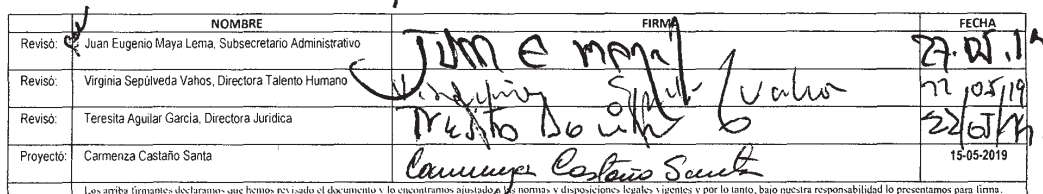 NOMBRE FIRMA FECHA
Revisó: Juan Eugenio Maya Lema, Subsecretario Administrativo Juan E Maya 27.05.19
Revisó: Virginia Sepúlveda Vahos, Directora Talento Humano Virginia Sepúlveda Vahos 22,05,19
Revisó: Teresita Aguilar García, Directora Jurídica Teresita 22/05/19
Proyectó: Carmenza Castaño Santa Carmenza Castaño Santa 15-05-2019
Los arriba firmantes declaramos que hemos revisado el documento y lo encontramos ajustado a las normas y disposiciones legales vigentes y por lo tanto, bajo nuestra responsabilidad lo presentamos para firma.